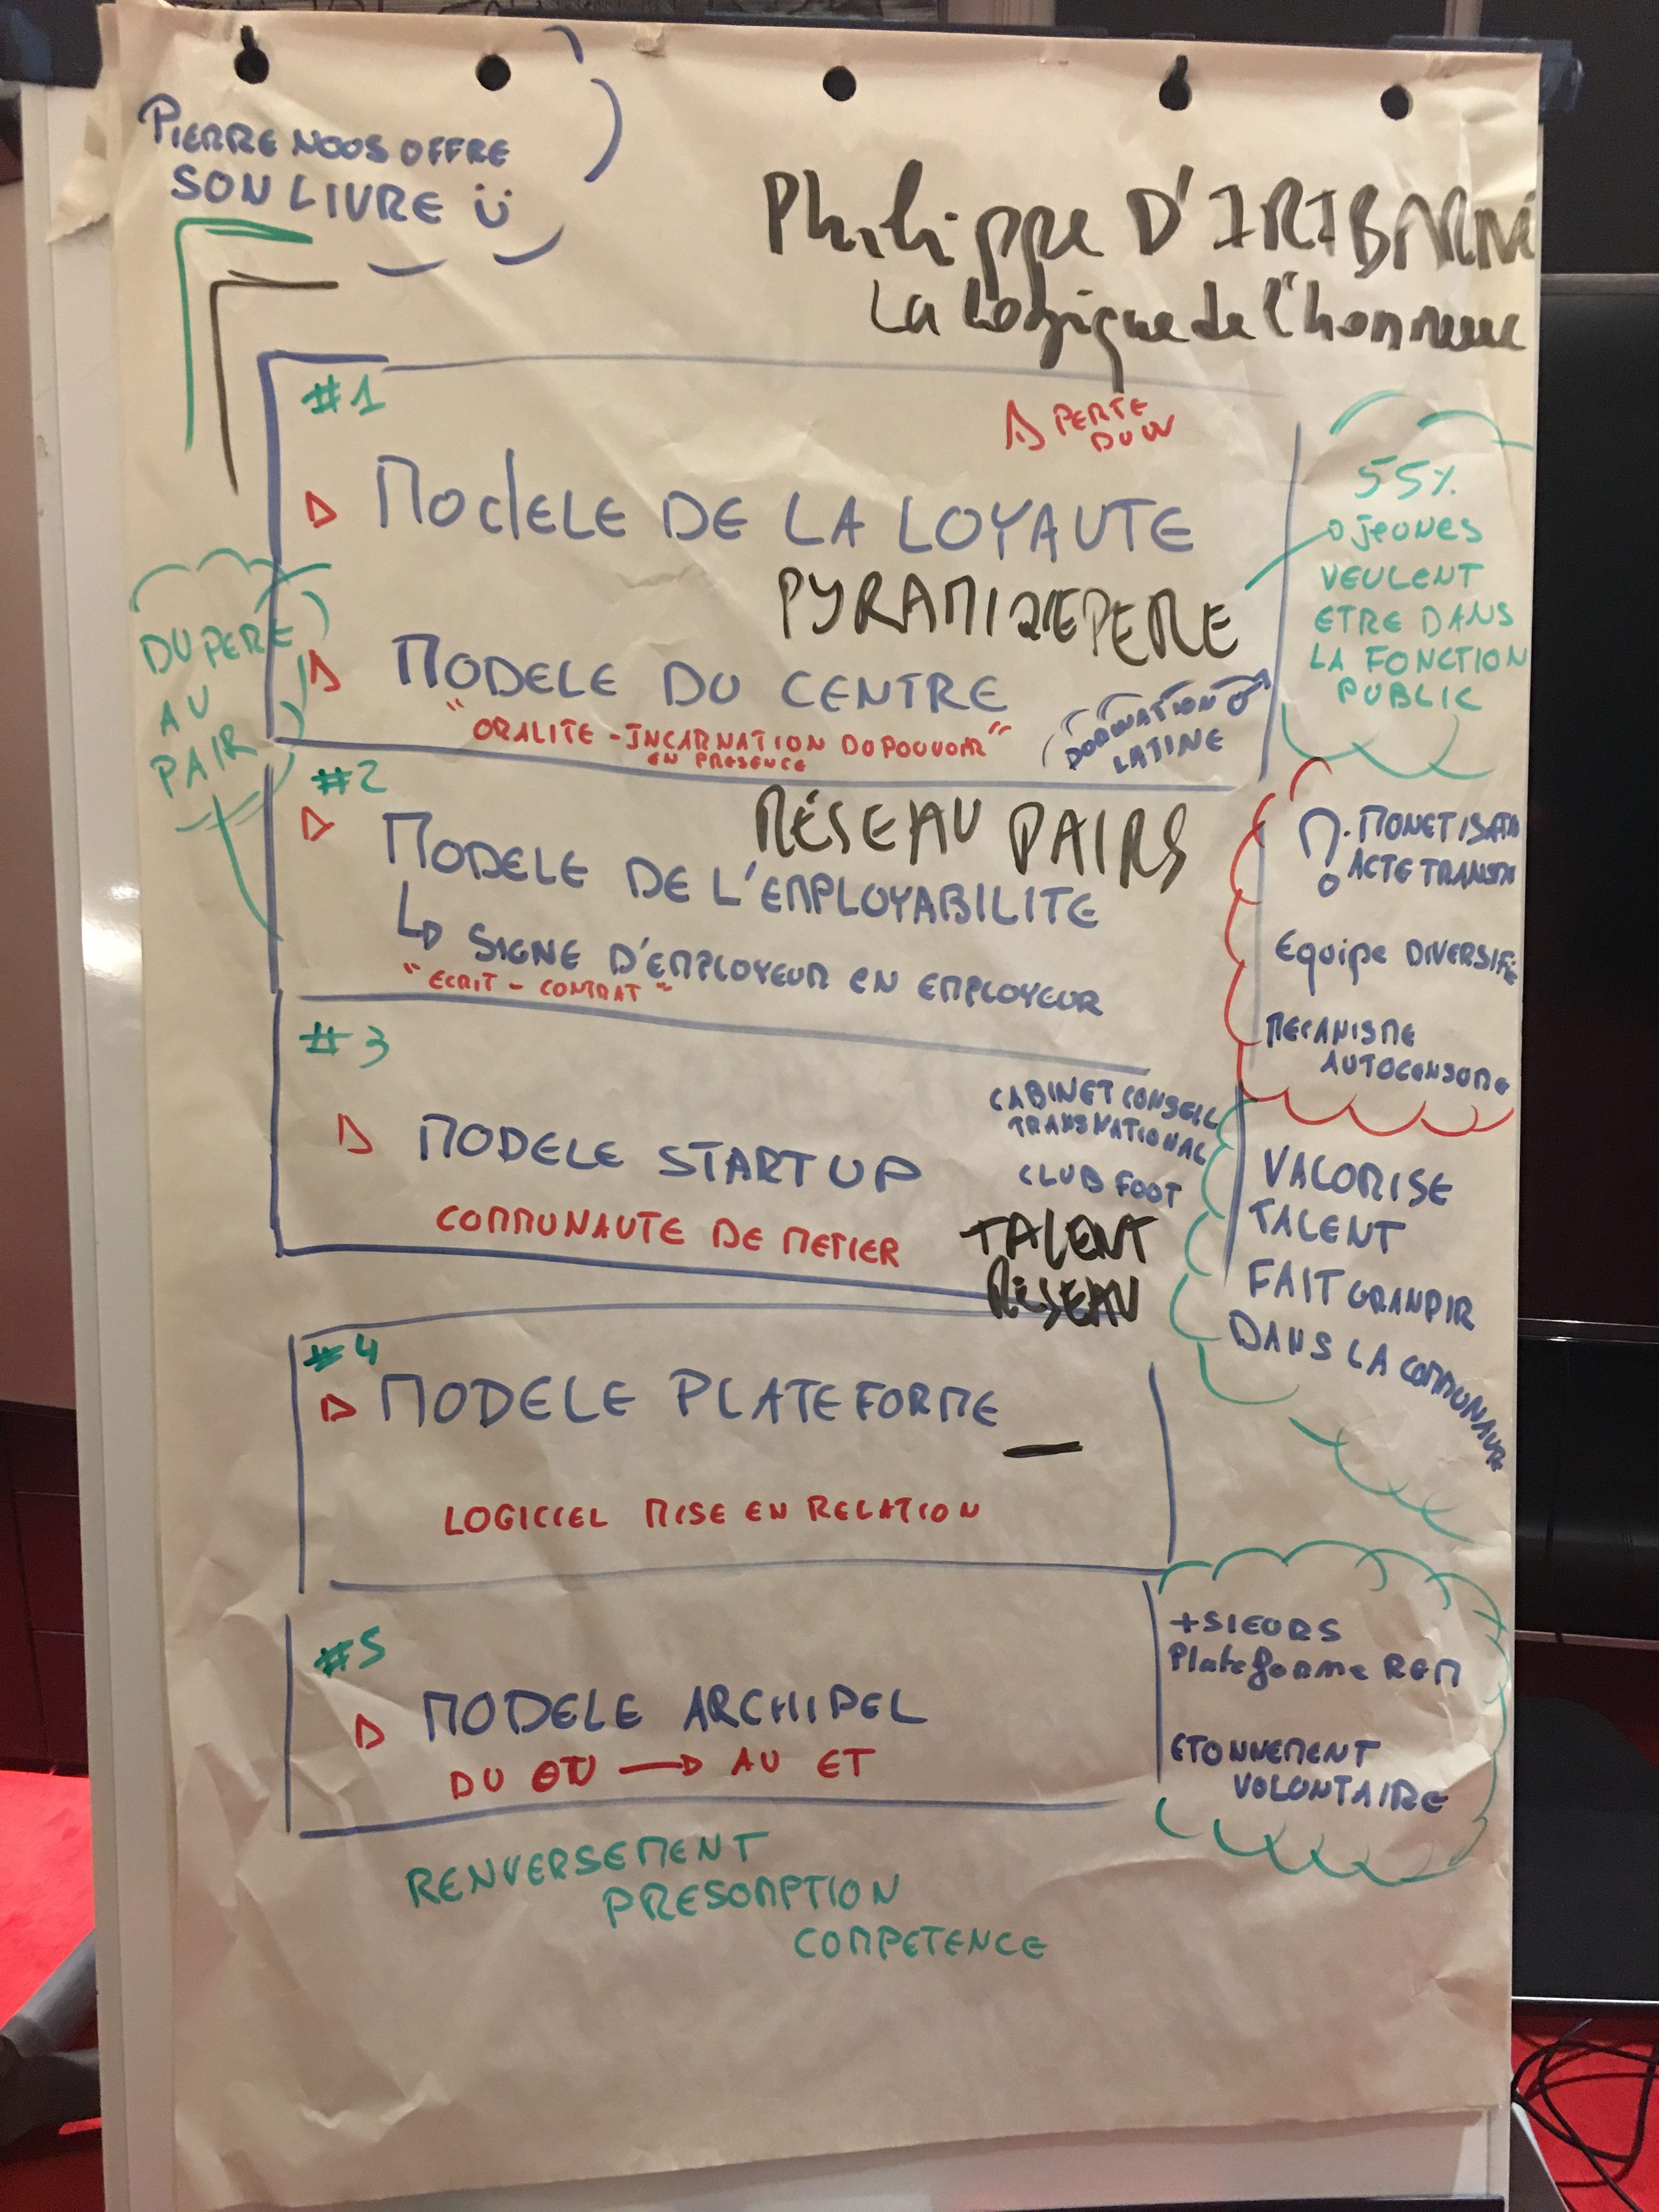 PIERRE NOUS OFFRE
SON LIVRE
Philippe D'IRIBARNE
La Logique de l'honneur
#1
PERTE
DU
MODELE DE LA LOYAUTE
PYRAMIDE PERE
MODELE DU CENTRE
"ORALITE - INCARNATION DU POUVOIR"
EN PRESENCE
DOMINATION
LATINE
55%
jeunes
VEULENT
ETRE DANS
LA FONCTION
PUBLIC
DU PERE
AU
PAIR
#2
RÉSEAU PAIRS
MODELE DE L'EMPLOYABILITE
SIGNE D'EMPLOYEUR EN EMPLOYEUR
"ECRIT - CONTRAT"
MONETISATN
ACTE TRANSN
Equipe DIVERSIFIE
MECANISME
AUTOCENSURE
#3
MODELE STARTUP
COMMUNAUTE DE METIER
CABINET CONSEIL
TRANSNATIONAL
CLUB FOOT
TALENT
RÉSEAU
VALORISE
TALENT
FAIT GRANDIR
DANS LA COMMUNAUTE
#4
MODELE PLATEFORME
LOGICIEL MISE EN RELATION
#5
MODELE ARCHIPEL
DU OU → AU ET
+SIEURS
Plateforme REM
ETONNEMENT
VOLONTAIRE
RENVERSEMENT
PRESOMPTION
COMPETENCE